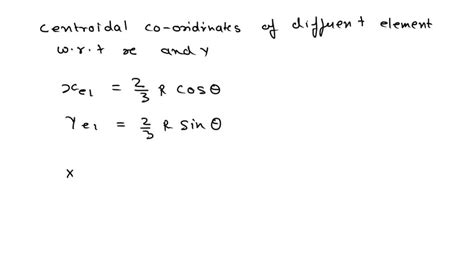 centroidal co-oridinates of diffuent element
w.r.t x and y
x_{e1} = 2/3 R cosθ
y_{e1} = 2/3 R sinθ
x